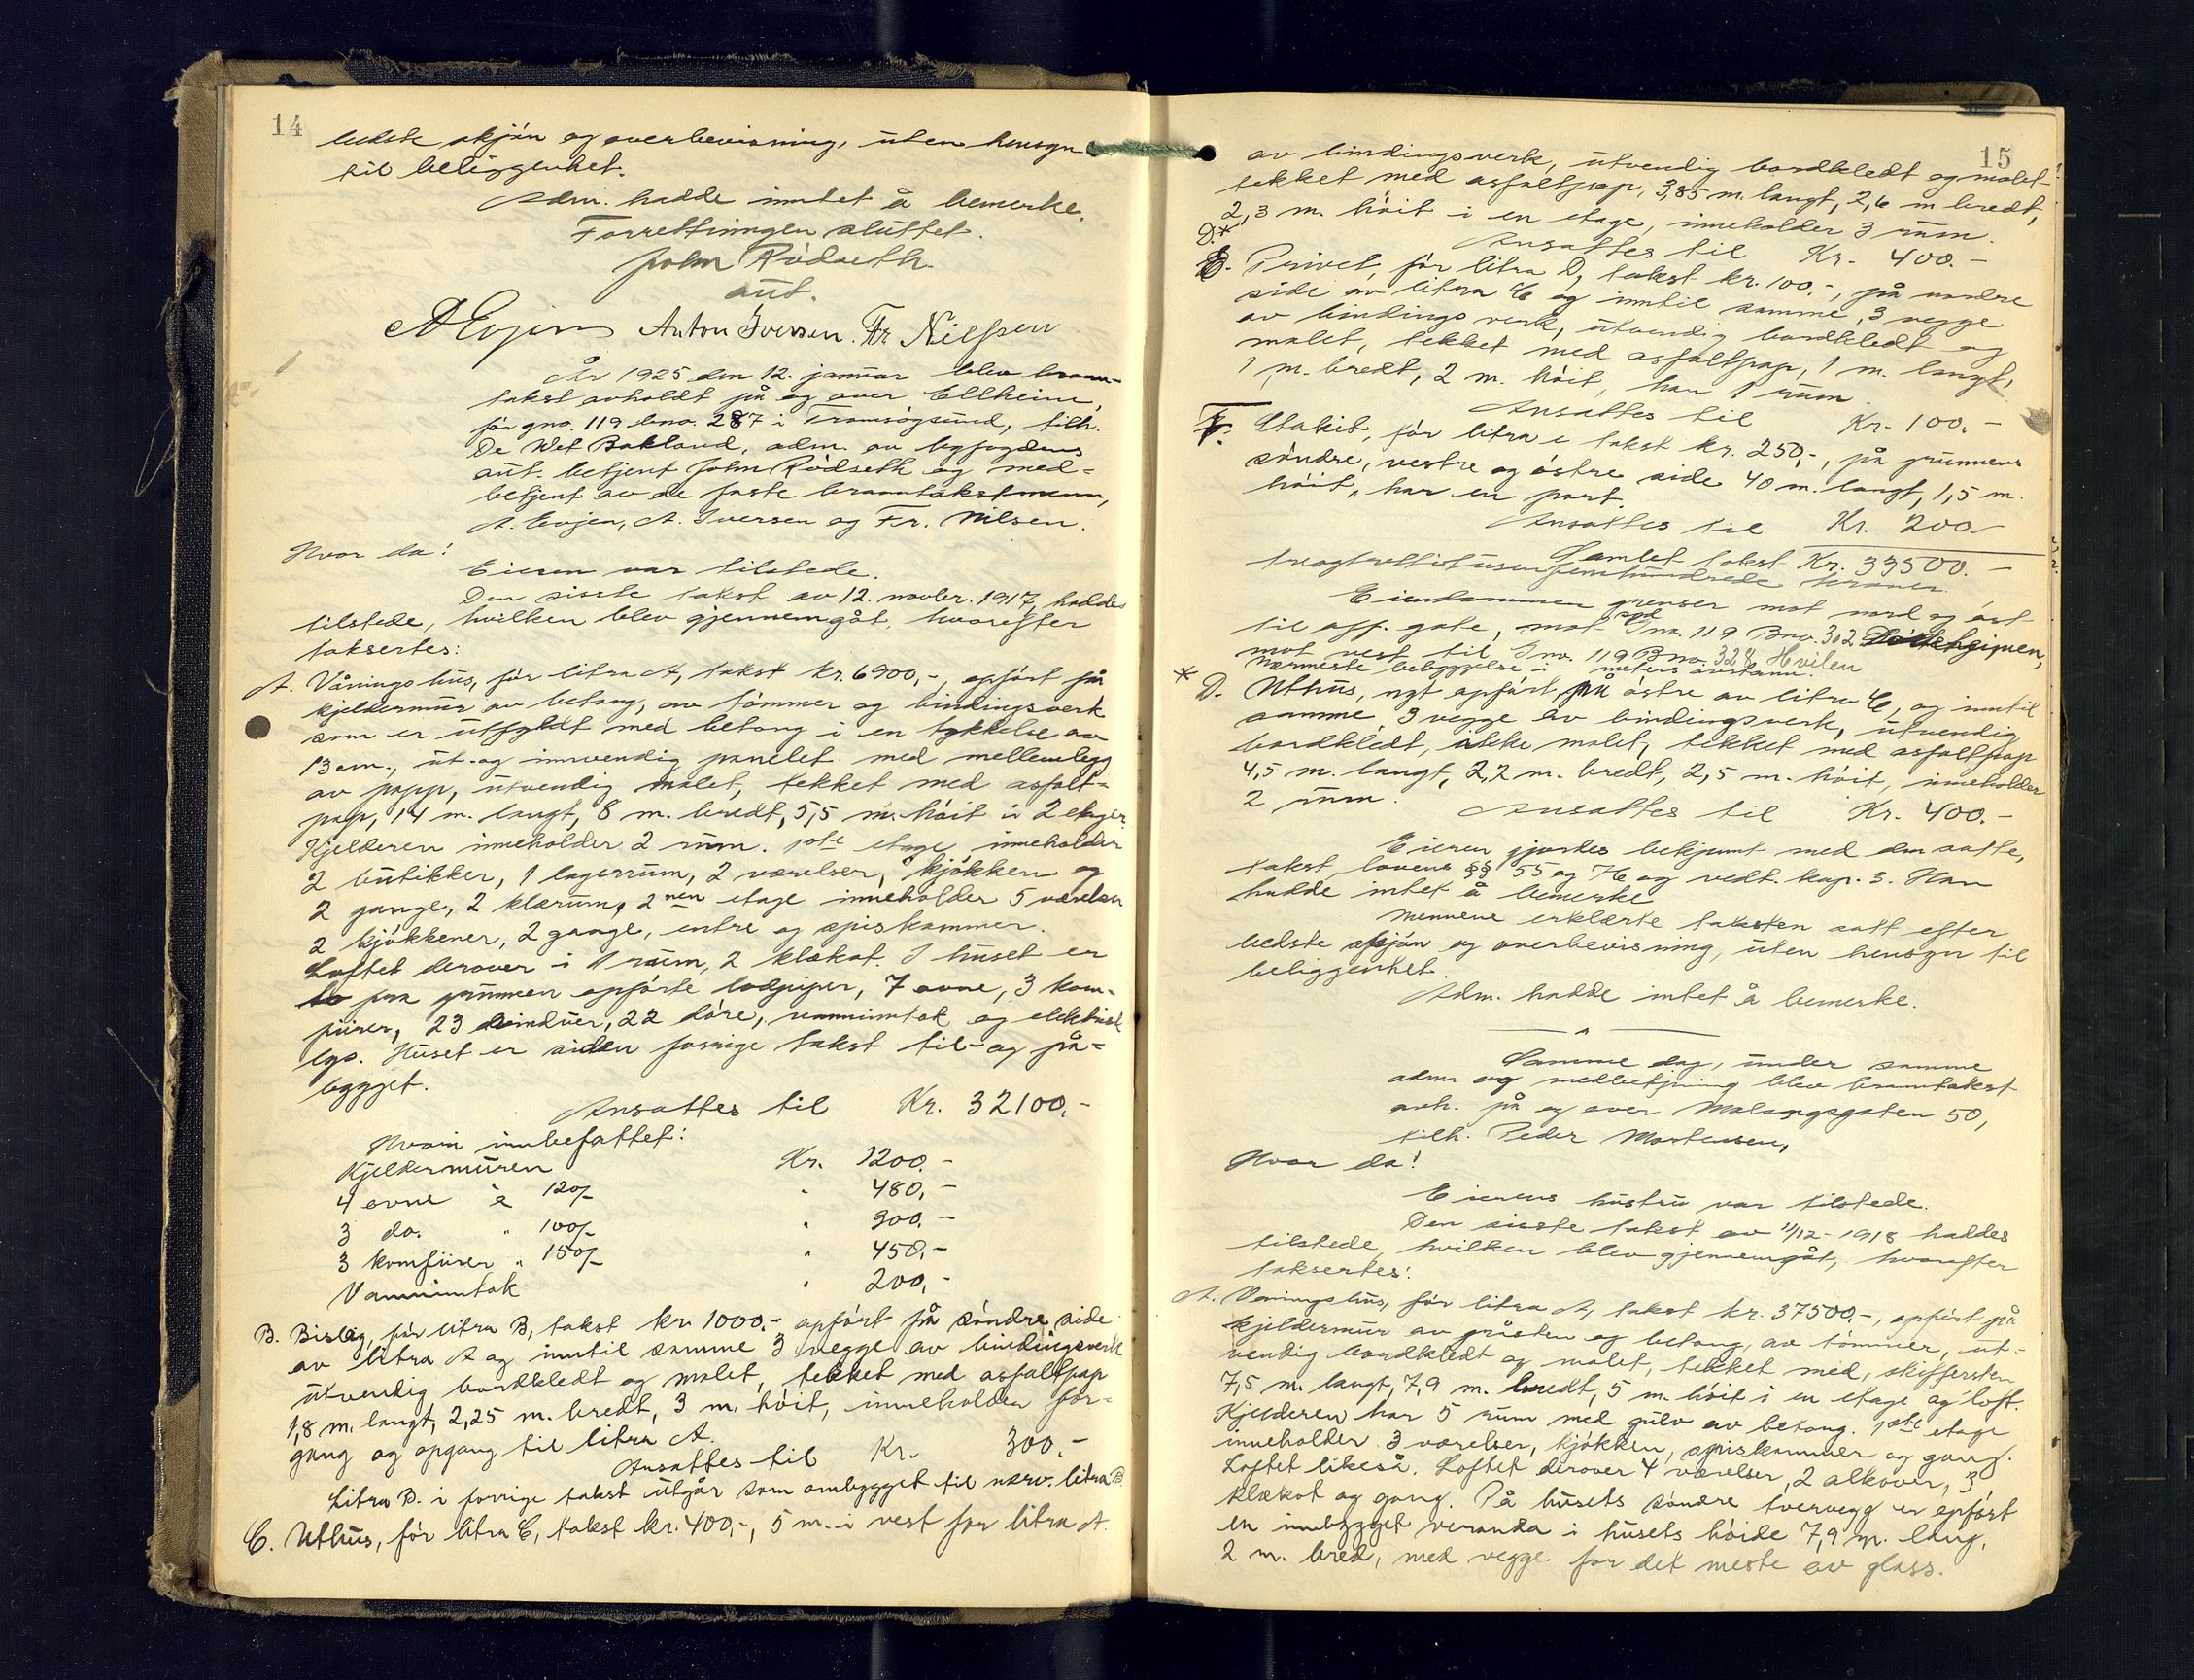 14
bedste skjön og overbevisning, uten hensyn
til beliggenhet.
Adm. hadde inntet å bemerke.
Forrettningen sluttet.
John Rödseth
aut.
A Evjen Anton Iversen. Fr Nilsen
År 1925 den 12. januar blev brann-
takst avholdt på og over Ellheim,
før gno. 119 bno. 287 i Tromsøysund, tilh.
De Wet Bakland, adm. av byfogdens
aut. betjent John Rödseth og med-
betjent av de faste branntakstmenn,
A. Evjen, A. Iversen og Fr. Nilsen.
Hvor da!
Eieren var tilstede.
Den sisste takst av 12. novbr. 1917, haddes
tilstede, hvilken blev gjennemgåt, hvorefter
taksertes:
A. Våningshus, før litra A, takst kr. 6900,-, opført på
kjeldermur av betong, av tömmer og bindingsverk
som er utfyldt med betong i en tykkelse av
13 cm., ut- og innvendig panelet med mellemlegg
av papp, utvendig malet, tekket med asfalt-
pap, 14 m. langt, 8 m. bredt, 5,5 m. höit i 2 etager.
Kjelderen inneholder 2 rum. 1ste etage inneholder
2 butikker, 1 lagerrum, 2 værelser, kjökken og
2 gange, 2 klærum, 2nen etage inneholder 5 værelser
2 kjökkener, 2 gange, entre og spiskammer.
Loftet derover i 1 rum, 2 klækot. I huset er
to fra grunnen opförte brandpiper, 7 ovne, 3 kom-
fürer, 23 vinduer, 22 döre, vanninntak og elektrisk
lys. Huset er siden forrige takst til- og på-
bygget.
Ansattes til Kr. 32100,-
Hvori innbefattet:
Kjeldermuren Kr. 1200.-
4 ovne à 120/- " 480,-
3 do. " 100/- " 300,-
3 komfürer " 150/- " 450,-
Vanninntak " 200,-
B. Bislag, før litra B, takst kr. 1000.- opfört på söndre side
av litra A og inntil samme 3 vegge av bindingsverk
utvendig bordkledt og malet, tekket med asfaltpap
1,8 m. langt, 2,25 m. bredt, 3 m. höit, inneholder for-
gang og opgang til litra A.
Ansattes til Kr. 300.-
Litra B. i forrige takst utgår som ombygget til nærv. litra B.
C. Uthus, før litra C, takst kr. 400,-, 5 m. i vest for litra A.
15
av bindingsverk, utvendig bordkledt og malet
tekket med asfaltpap, 3,85 m. langt, 2,6 m bredt,
2,3 m. höit i en etage, inneholder 3 rum.
Ansattes til Kr. 400.-
D.*
E. Privet, før litra D, takst kr. 100.-, på nordre
side av litra C og inntil samme, 3 vegge
av bindingsverk, utvendig bordkledt og
malet, tekket med asfaltpap, 1 m. langt,
1 m. bredt, 2 m. höit, har 1 rum.
Ansattes til Kr. 100.-
F. Stakit, før litra E takst kr. 250,-, på grunnens
söndre, vestre og östre side 40 m. langt, 1,5 m.
höit, har en port.
Ansattes til Kr. 200
Samlet takst Kr. 33500.-
treogtrettitusenfemhundrede kroner.
Eiendommen grenser mot nord og öst
til off. gate, mot syd Gno. 119 Bno. 302
mot vest til Gno. 119 Bno. 328 Hvilen
Nærmeste bebyggelse i meters avstann.
* D. Uthus, nyt opfört, på östre av litra C, og inntil
samme, 3 vegge av bindingsverk, utvendig
bordkledt, ikke malet, tekket med asfaltpap
4,5 m. langt, 2,2 m. bredt, 2,5 m. höit, inneholder
2 rum.
Ansattes til Kr. 400.-
Eieren gjordes bekjennt med den satte,
takst, lovens §§ 55 og 76 og vedt. kap. 3. Han
hadde intet å bemerke
Mennene erklærte taksten satt efter
bedste skjön og overbevisning, uten hensyn til
beliggenhet.
Adm. hadde intet å bemerke.
Samme dag, under samme
adm. og medbetjening blev branntakst
avh. på og over Malangsgaten 50,
tilh. Peder Mortensen,
Hvor da!
Eierens hustru var tilstede.
Den sisste takst av 11/12-1918 haddes
tilstede, hvilken blev gjennemgåt, hvorefter
taksertes:
A. Våningshus, før litra A, takst kr. 37500,-, opfört på
kjeldermur av gråsten og betong, av tömmer, ut-
vendig bordkledt og malet, tekket med, skiffersten
7,5 m. langt, 7,9 m. bredt, 5 m. höit i en etage og loft.
Kjelderen har 5 rum med gulv av betong. 1ste etage
inneholder 3 værelser, kjökken, spiskammer og gang.
Loftet likeså. Loftet derover 4 værelser, 2 alkover, 3
klækot og gang. På husets söndre tvervegg er opfört
en innbygget veranda i husets höide 7,9 m. lang,
2 m. bred, med vegge for det meste av glass.